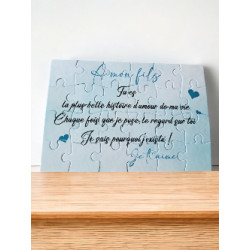 A mon fils
Tu es
la plus belle histoire d'amour de ma vie.
Chaque fois que je pose le regard sur toi
Je sais pourquoi j'existe !
Je t'aime